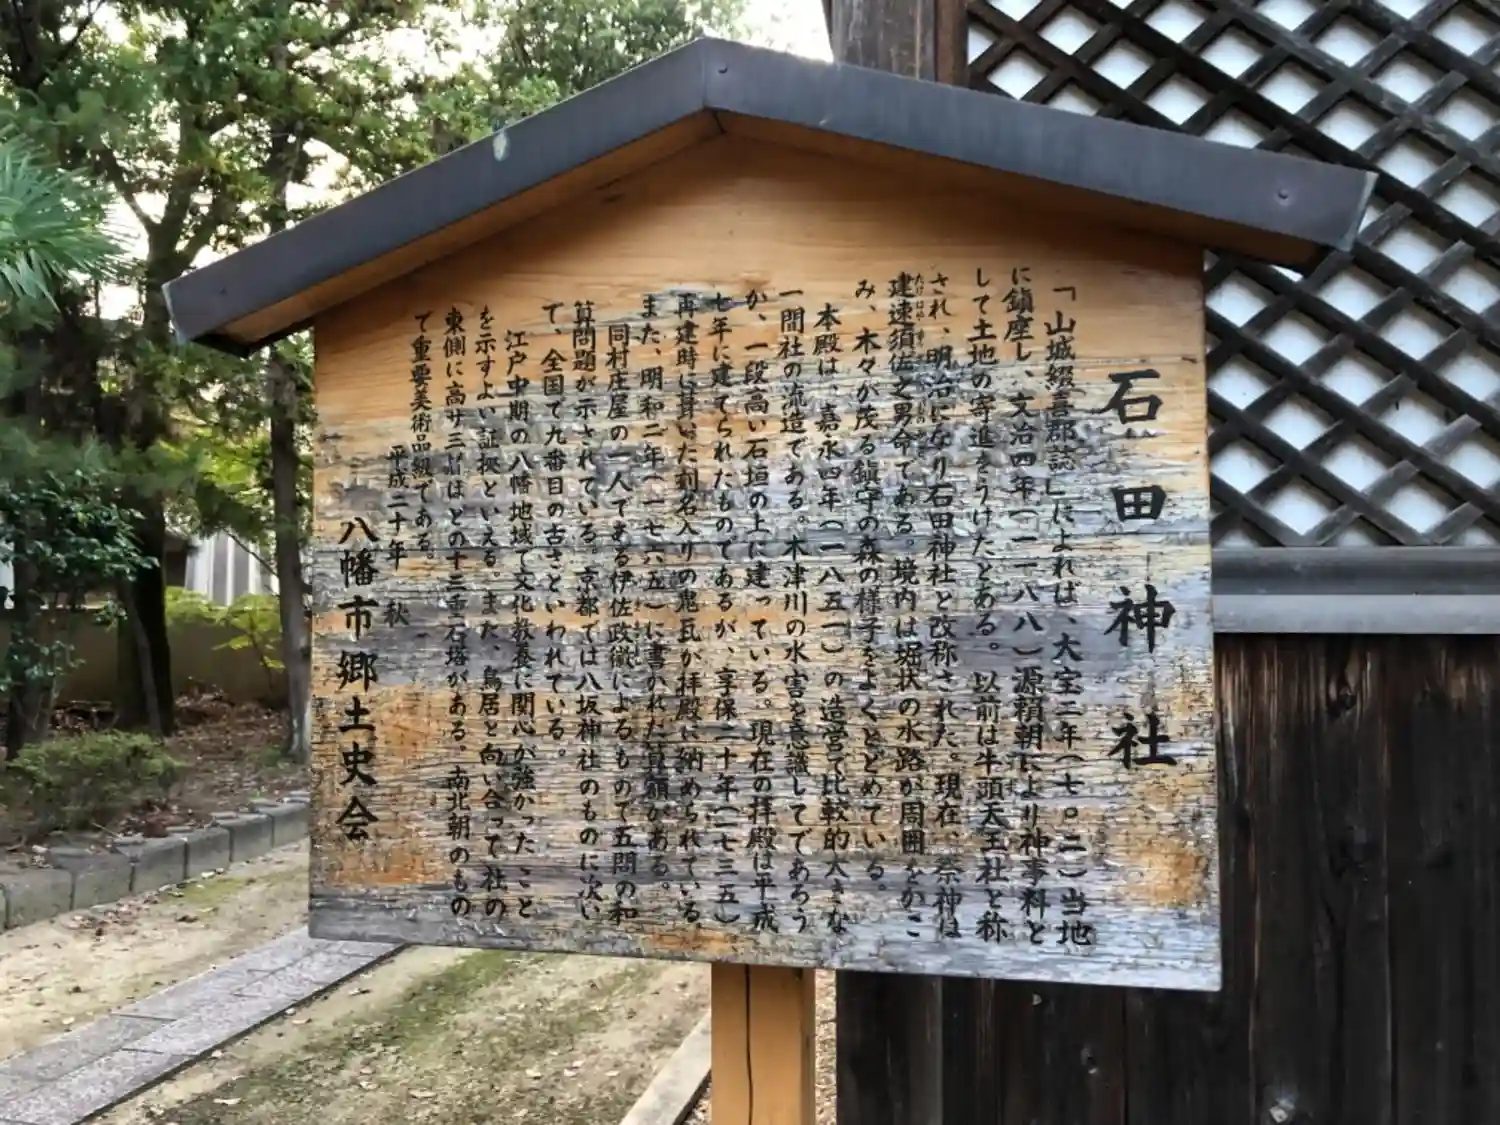 石田神社
「山城綴喜郡誌」によれば、大宝二年(七〇二)当地
に鎮座し、文治四年(一一八八)源頼朝により神事料と
して土地の寄進をうけたとある。以前は牛頭天王社と称
され、明治になり石田神社と改称された。現在、祭神は
建速須佐之男命である。境内は堀状の水路が周囲をかこ
み、木々が茂る鎮守の森の様子をよくとどめている。
本殿は、嘉永四年(一八五一)の造営で比較的大きな
一間社の流造である。木津川の水害を意識してであろう
か、一段高い石垣の上に建っている。現在の拝殿は平成
七年に建てられたものであるが、享保二十年(一七三五)
再建時に葺いた刻名入りの鬼瓦が拝殿に納められている。
また、明和二年(一七六五)に書かれた算額がある。
同村庄屋の一人である伊佐政徹によるもので五問の和
算問題が示されている。京都では八坂神社のものに次い
で、全国で九番目の古さといわれている。
江戸中期の八幡地域で文化教養に関心が強かったこと
を示すよい証拠といえる。また、鳥居と向い合って社の
東側に高サ三㍍ほどの十三重石塔がある。南北朝のもの
で重要美術品級である。
平成二十年 秋
八幡市郷土史会